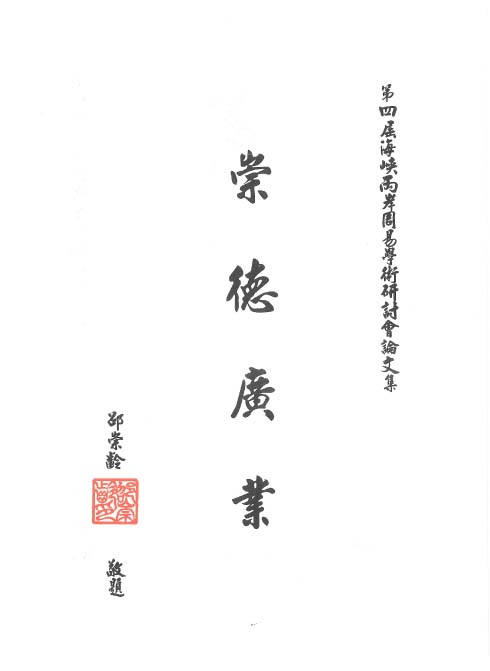 第四屆海峽兩岸周易學術研討會論文集
崇德廣業
邵崇齡
敬題